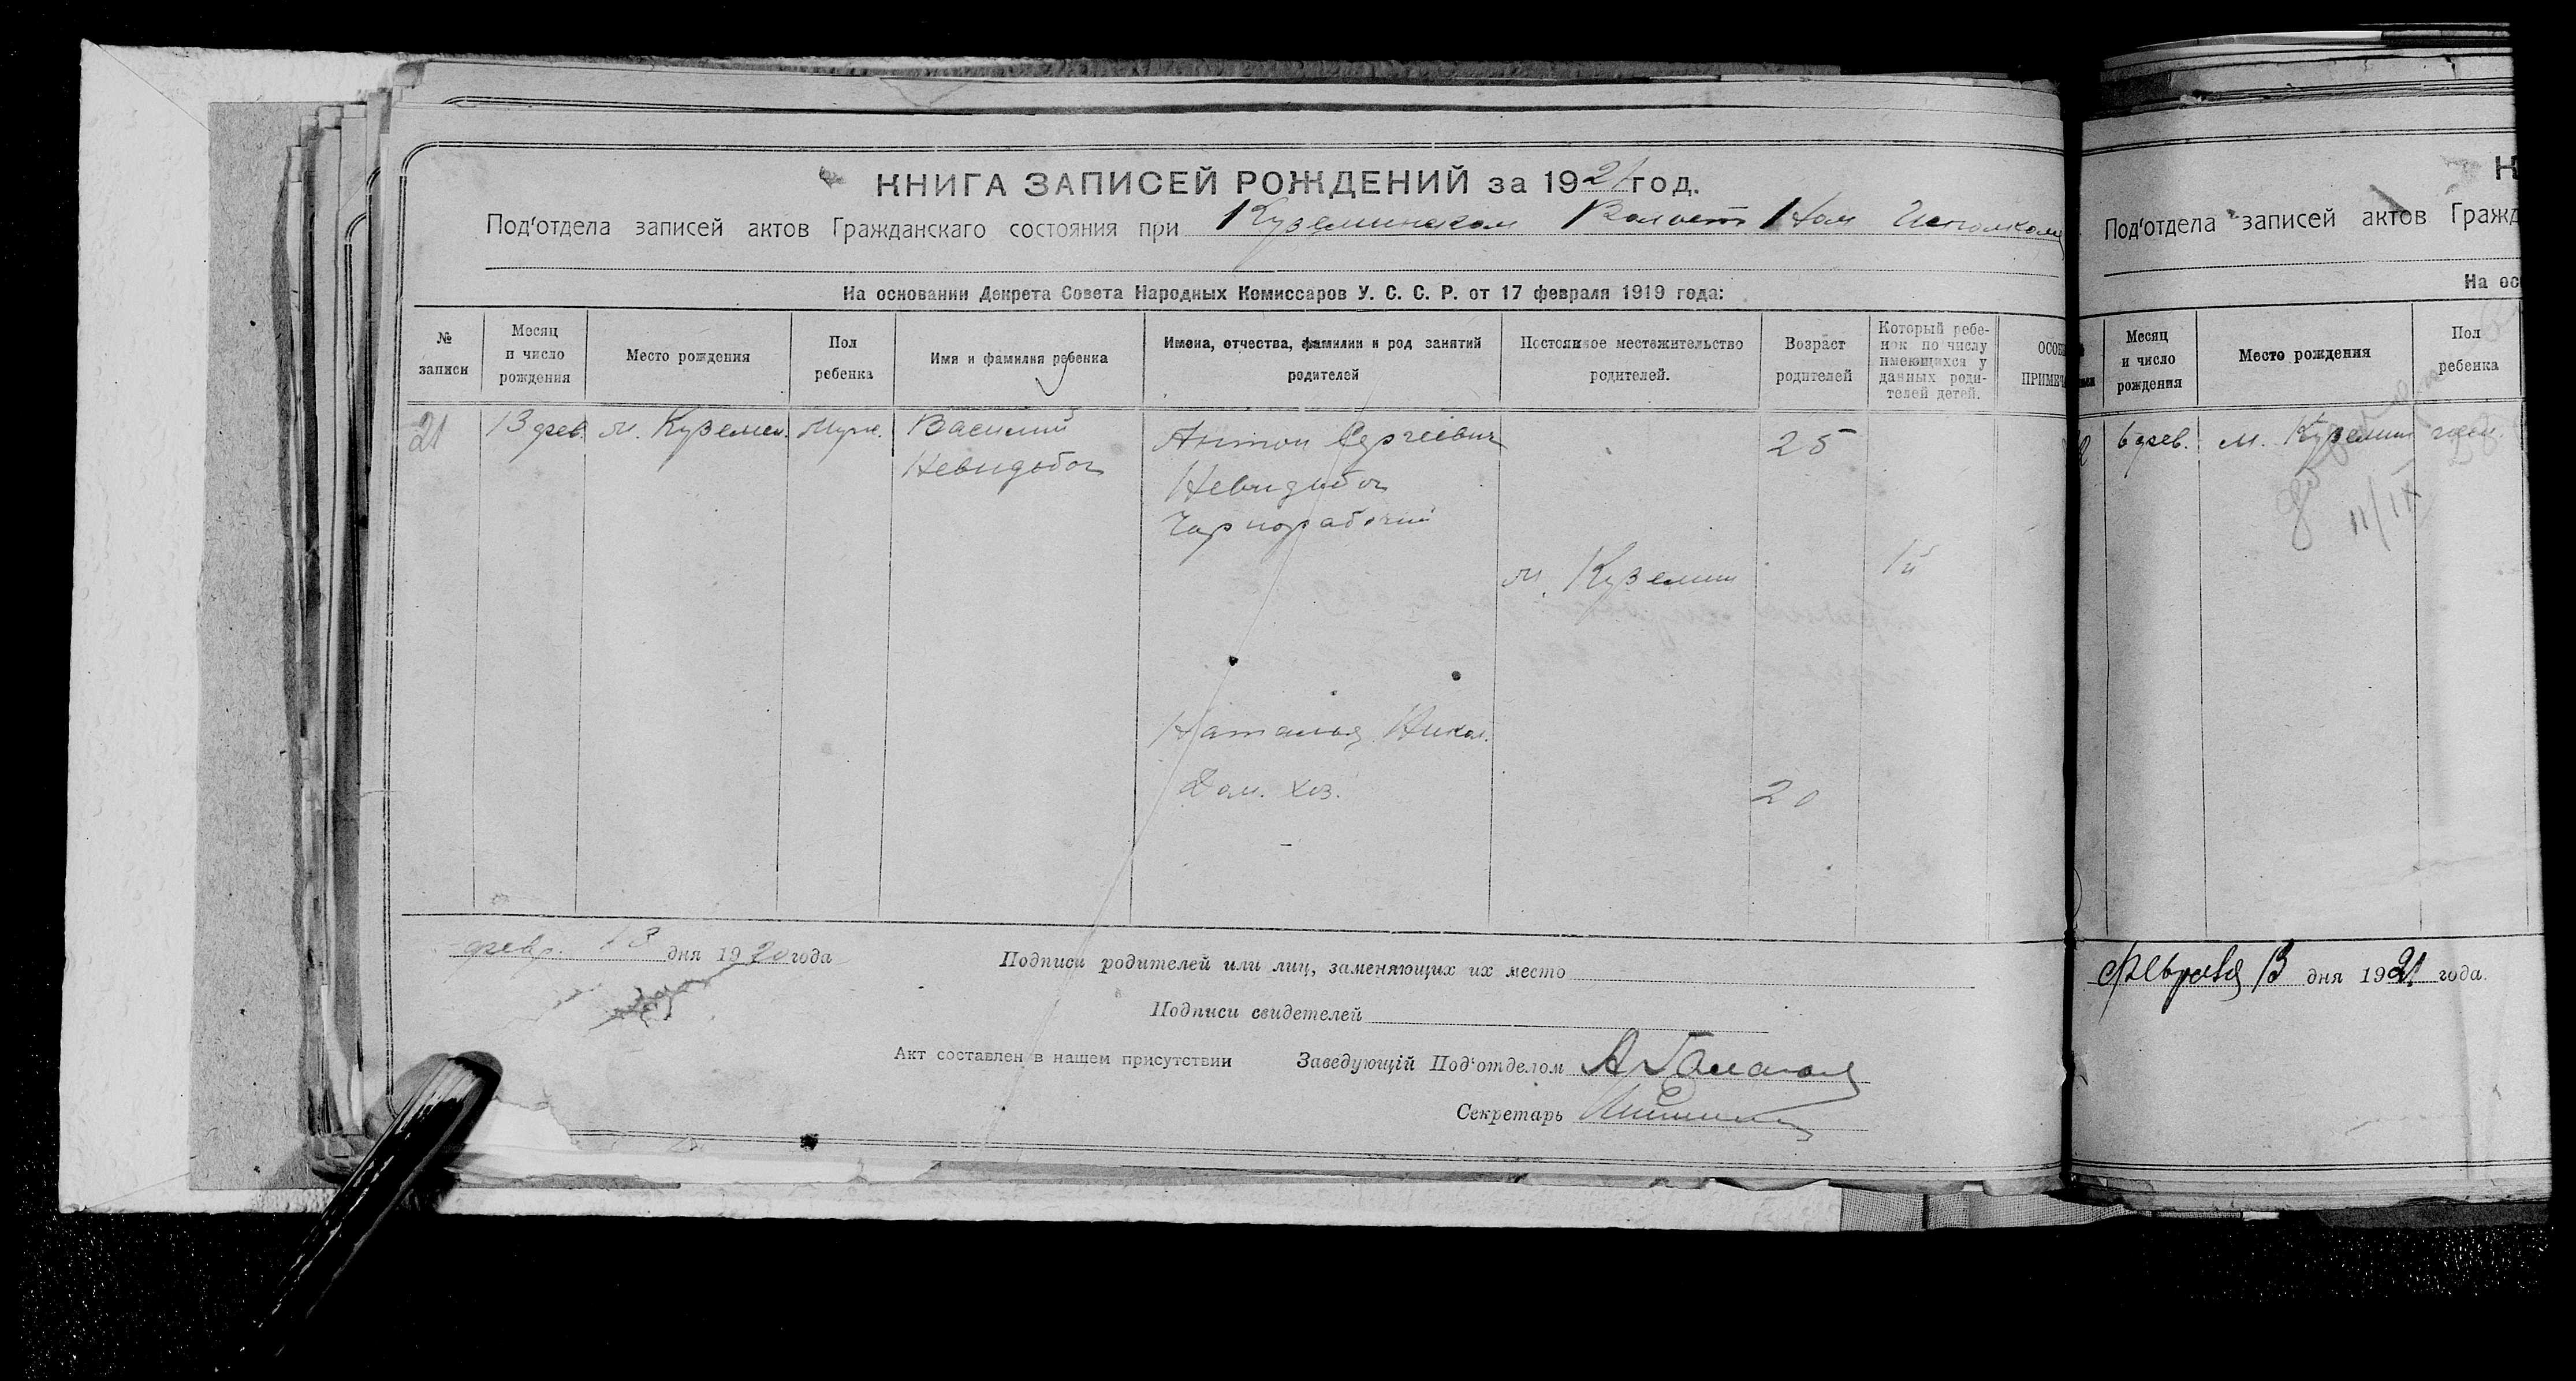 КНИГА ЗАПИСЕЙ РОЖДЕНИЙ за 1921 год.
Под'отдела записей актов Гражданскаго состояния при Куземинском Волост
На основании Декрета Совета Народных Комиссаров У. С. С. Р. от 17 февраля 1919 года:
№ записи
Месяц и число рождения
Место рождения
Пол ребенка
Имя и фамилия ребенка
Имена, отчества, фамилии и род занятий родителей
Постоянное местожительство родителей.
Возраст родителей
Который ребе-
нок по числу
имеющихся у
данных роди-
телей детей.
ОСОБЫ
ПРИМЕЧ
21 13 фев. м. Куземен. Муж. Василий Антон Сергеевич 25
Невидобог Невидобог
Чернорабочий
м. Куземин 1й
Наталья Никол.
Дом. хоз. 20
февр. 13 дня 1920 года
Подписи родителей или лиц, заменяющих их место
Подписи свидетелей
Акт составлен в нашем присутствии Заведующій Под'отделом
Секретарь
К
Под'отдела записей актов Гражд
На ос
Месяц и число рождения
Место рождения
Пол ребенка
6 фев. м. Куземин жен.
11/IX
Февраля 13 дня 1921 года